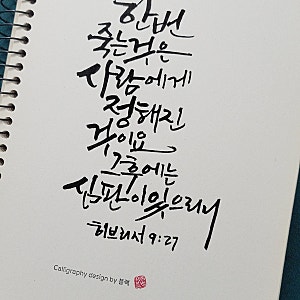 한번
죽는것은
사람에게
정해진
것이요
그후에는
심판이있으리니
히브리서 9:27
Calligraphy design by